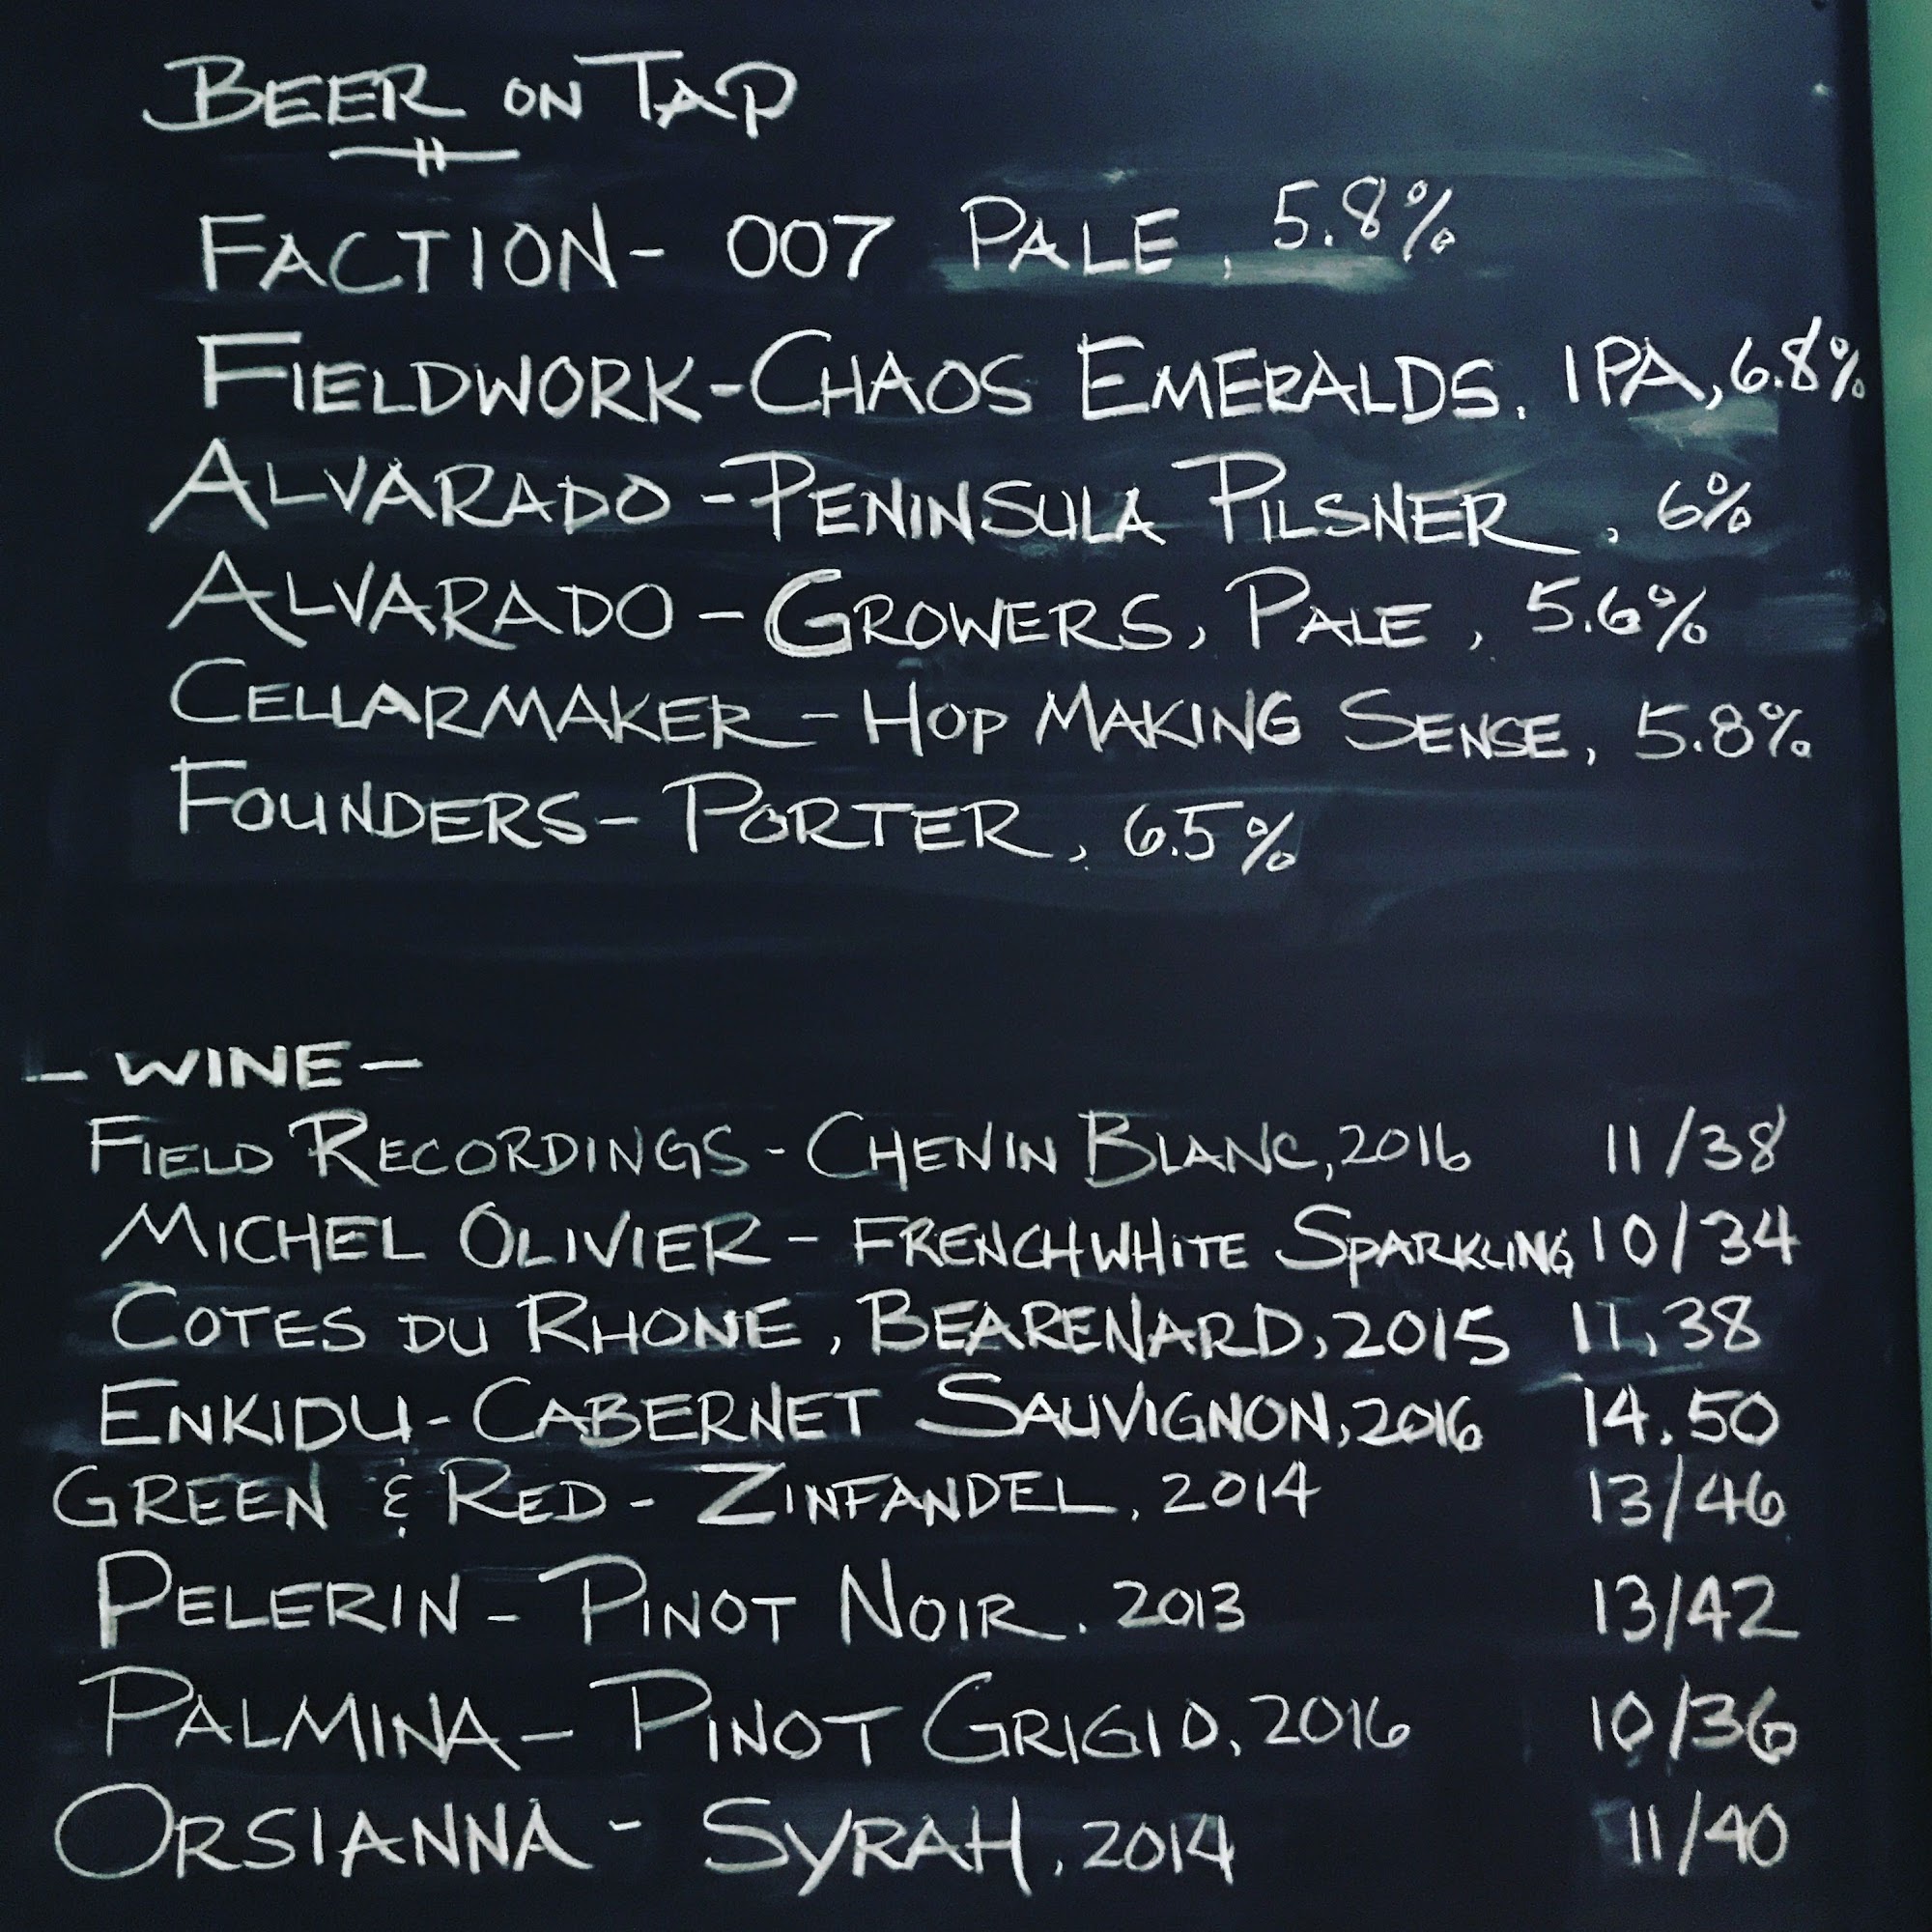 BEER ON TAP
FACTION - 007 PALE, 5.8%
FIELDWORK - CHAOS EMERALDS. IPA, 6.8%
ALVARADO - PENINSULA PILSNER, 6%
ALVARADO - GROWERS, PALE, 5.6%
CELLARMAKER - HOP MAKING SENSE, 5.8%
FOUNDERS - PORTER, 6.5%
- WINE -
FIELD RECORDINGS - CHENIN BLANC, 2016 11/38
MICHEL OLIVIER - FRENCH WHITE SPARKLING 10/34
COTES DU RHONE, BEARENARD, 2015 11, 38
ENKIDU - CABERNET SAUVIGNON, 2016 14. 50
GREEN & RED - ZINFANDEL, 2014 13/46
PELERIN - PINOT NOIR. 2013 13/42
PALMINA - PINOT GRIGIO, 2016 10/36
ORSIANNA - SYRAH, 2014 11/40